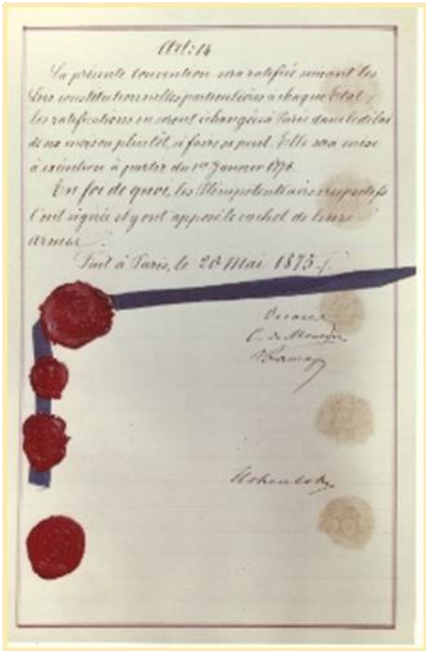 Art: 14
La présente Convention sera ratifiée suivant les
lois constitutionnelles particulières à chaque Etat;
les ratifications en seront échangées à Paris dans le délai
de six mois ou plutôt, si faire se peut. Elle sera mise
à exécution à partir du 1er Janvier 1876.
En foi de quoi, les Plénipotentiaires respectifs
l'ont signée et y ont apposé le cachet de leurs
armes.
Fait à Paris, le 20 Mai 1875.
Decazes
C. de Meaux
Dumas